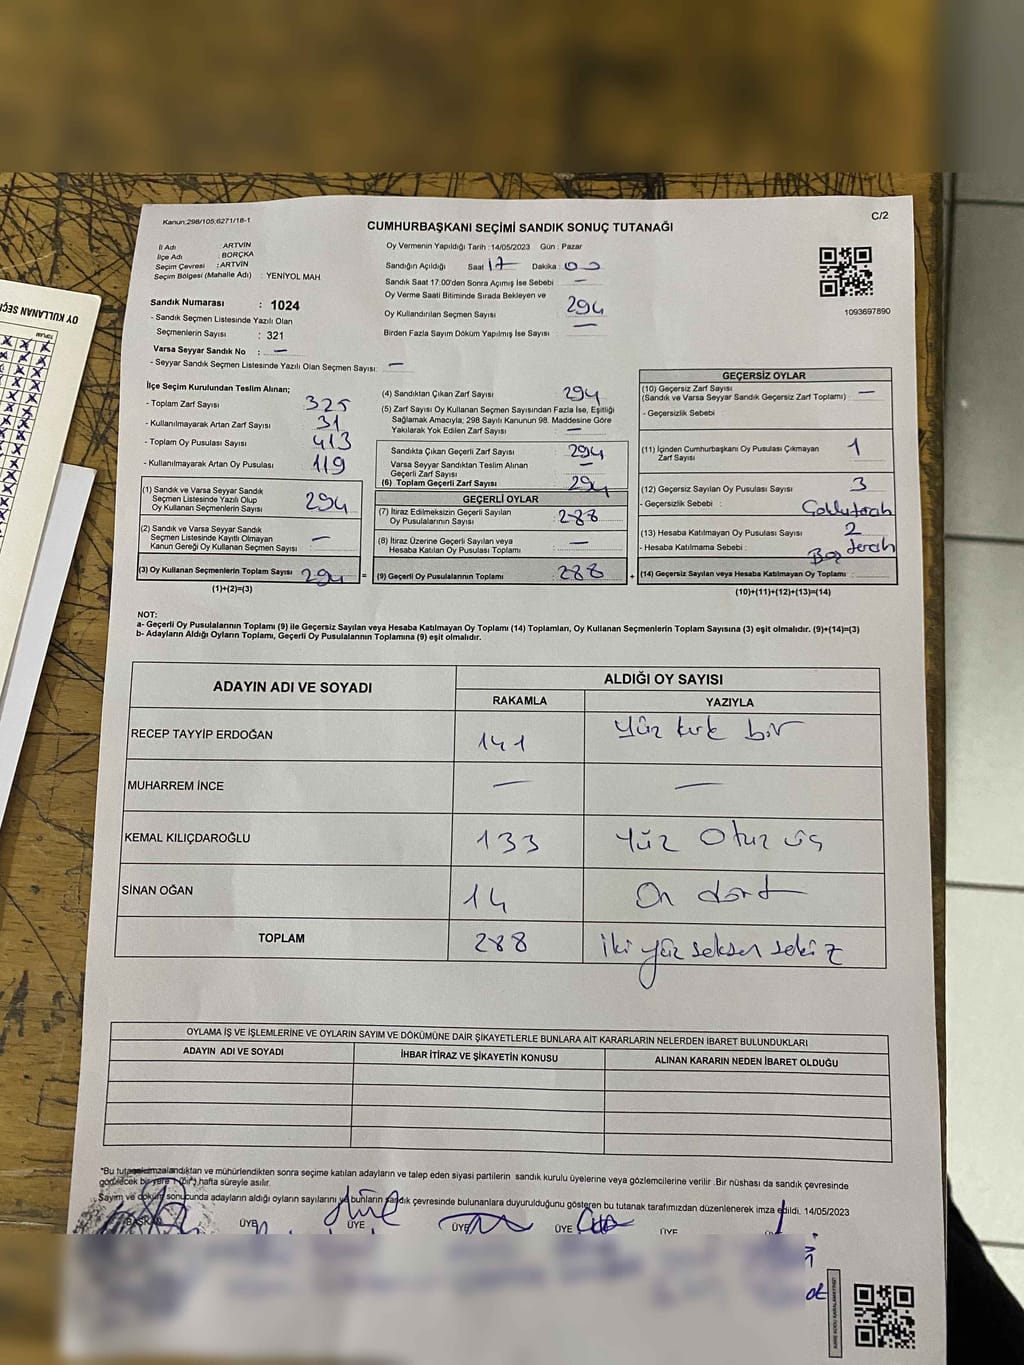 OY KULLANAN SEÇ
TOPLAM
Kanun:298/105;6271/18-1
C/2
CUMHURBAŞKANI SEÇİMİ SANDIK SONUÇ TUTANAĞI
İl Adı : ARTVİN
İlçe Adı : BORÇKA
Seçim Çevresi : ARTVİN
Seçim Bölgesi (Mahalle Adı) : YENİYOL MAH.
Sandık Numarası : 1024
- Sandık Seçmen Listesinde Yazılı Olan
Seçmenlerin Sayısı : 321
Varsa Seyyar Sandık No : —
- Seyyar Sandık Seçmen Listesinde Yazılı Olan Seçmen Sayısı: —
Oy Vermenin Yapıldığı Tarih :14/05/2023 Gün : Pazar
Sandığın Açıldığı Saat 17 Dakika : 00
Sandık Saat 17:00'den Sonra Açımış İse Sebebi —
Oy Verme Saati Bitiminde Sırada Bekleyen ve
Oy Kullandırılan Seçmen Sayısı 294
Birden Fazla Sayım Döküm Yapılmış İse Sayısı —
1093697890
İlçe Seçim Kurulundan Teslim Alınan;
- Toplam Zarf Sayısı 325
- Kullanılmayarak Artan Zarf Sayısı 31
- Toplam Oy Pusulası Sayısı 413
- Kullanılmayarak Artan Oy Pusulası 119
(1) Sandık ve Varsa Seyyar Sandık
Seçmen Listesinde Yazılı Olup
Oy Kullanan Seçmenlerin Sayısı 294
(2) Sandık ve Varsa Seyyar Sandık
Seçmen Listesinde Kayıtlı Olmayan
Kanun Gereği Oy Kullanan Seçmen Sayısı —
(3) Oy Kullanan Seçmenlerin Toplam Sayısı 294 =
(1)+(2)=(3)
(4) Sandıktan Çıkan Zarf Sayısı 294
(5) Zarf Sayısı Oy Kullanan Seçmen Sayısından Fazla İse, Eşitliği
Sağlamak Amacıyla; 298 Sayılı Kanunun 98. Maddesine Göre
Yakılarak Yok Edilen Zarf Sayısı —
Sandıkta Çıkan Geçerli Zarf Sayısı 294
Varsa Seyyar Sandıktan Teslim Alınan
Geçerli Zarf Sayısı —
(6) Toplam Geçerli Zarf Sayısı 294
GEÇERLİ OYLAR
(7) İtiraz Edilmeksizin Geçerli Sayılan
Oy Pusulalarının Sayısı 288
(8) İtiraz Üzerine Geçerli Sayılan veya
Hesaba Katılan Oy Pusulası Toplamı —
(9) Geçerli Oy Pusulalarının Toplamı 288 +
GEÇERSİZ OYLAR
(10) Geçersiz Zarf Sayısı
(Sandık ve Varsa Seyyar Sandık Geçersiz Zarf Toplamı) —
- Geçersizlik Sebebi
(11) İçinden Cumhurbaşkanı Oy Pusulası Çıkmayan
Zarf Sayısı 1
(12) Geçersiz Sayılan Oy Pusulası Sayısı 3
- Geçersizlik Sebebi :
(13) Hesaba Katılmayan Oy Pusulası Sayısı 2
- Hesaba Katılmama Sebebi : Boş
(14) Geçersiz Sayılan veya Hesaba Katılmayan Oy Toplamı :
(10)+(11)+(12)+(13)=(14)
NOT:
a- Geçerli Oy Pusulalarının Toplamı (9) ile Geçersiz Sayılan veya Hesaba Katılmayan Oy Toplamı (14) Toplamları, Oy Kullanan Seçmenlerin Toplam Sayısına (3) eşit olmalıdır. (9)+(14)=(3)
b- Adayların Aldığı Oyların Toplamı, Geçerli Oy Pusulalarının Toplamına (9) eşit olmalıdır.
ADAYIN ADI VE SOYADI
ALDIĞI OY SAYISI
RAKAMLA YAZIYLA
RECEP TAYYİP ERDOĞAN 141 Yüz kırk bir
MUHARREM İNCE — —
KEMAL KILIÇDAROĞLU 133 Yüz Otuz üç
SİNAN OĞAN 14 On dört
TOPLAM 288 iki yüz seksen sekiz
OYLAMA İŞ VE İŞLEMLERİNE VE OYLARIN SAYIM VE DÖKÜMÜNE DAİR ŞİKAYETLERLE BUNLARA AİT KARARLARIN NELERDEN İBARET BULUNDUKLARI
ADAYIN ADI VE SOYADI İHBAR İTİRAZ VE ŞİKAYETİN KONUSU ALINAN KARARIN NEDEN İBARET OLDUĞU
*Bu tutanak imzalandıktan ve mühürlendikten sonra seçime katılan adayların ve talep eden siyasi partilerin sandık kurulu üyelerine veya gözlemcilerine verilir .Bir nüshası da sandık çevresinde
görülecek bir yere 1 (bir) hafta süreyle asılır.
Sayım ve döküm sonucunda adayların aldığı oyların sayılarını ve bunların sandık çevresinde bulunanlara duyurulduğunu gösteren bu tutanak tarafımızdan düzenlenerek imza edildi. 14/05/2023
BAŞKAN ÜYE ÜYE ÜYE ÜYE ÜYE